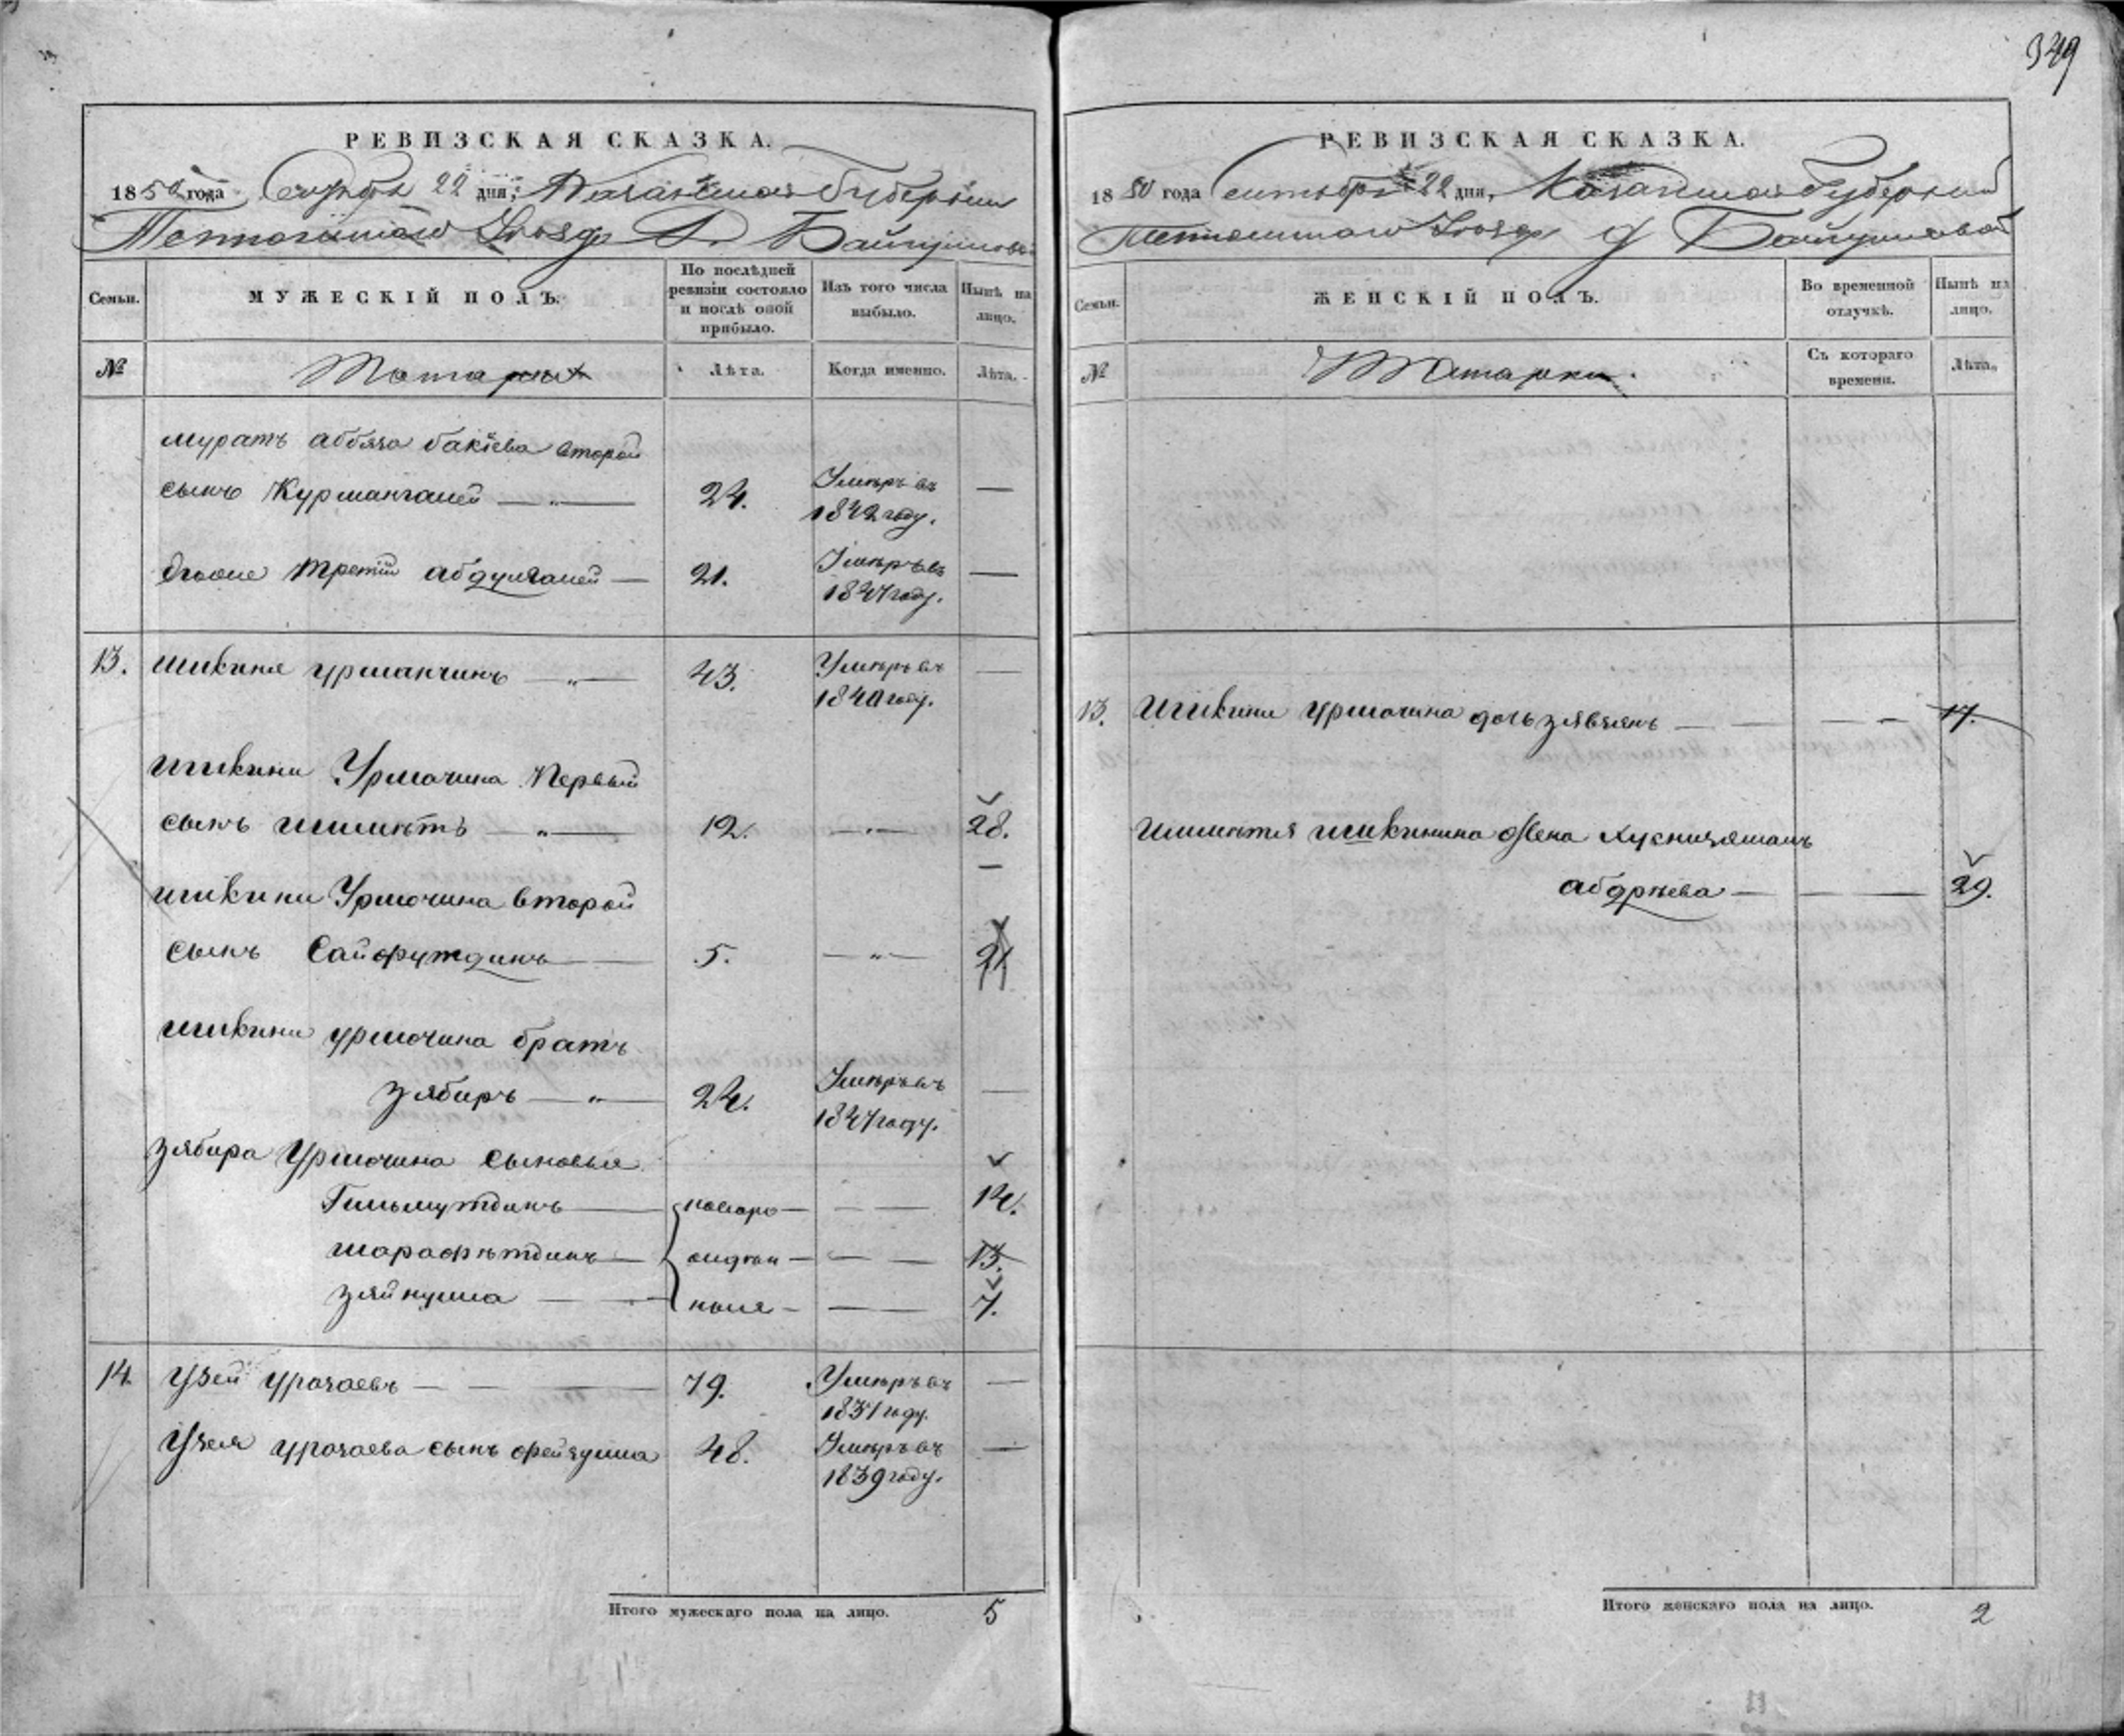 349
РЕВИЗСКАЯ СКАЗКА.
1850 года Сентября 22 дня, Казанской Губернии
Тетюшскаго Уезда Д. Байгуловой
Семьи.
МУЖЕСКІЙ ПОЛЪ.
По послѣдней ревизіи состояло и послѣ оной прибыло.
Изъ того числа выбыло.
Нынѣ на лицо.
№
Татары
Лѣта.
Когда именно.
Лѣта.
муратъ аббяза бакіева второй
сынъ Курмангалей — 24. Умѣръ въ 1842 году. —
третій абдулганей — 21. Умѣръ въ 1847 году. —
13. ишкиня урманчинъ — 43. Умѣръ въ 1840 году. —
ишкини Урмачина Первый
сынъ ишмѣтъ — 12. — 28.
ишкини Урмачина второй
сынъ Сайфутдинъ — 5. — 21
ишкини урмачина братъ
зябиръ — 24. Умѣръ въ 1847 году. —
зябира Урмачина сыновья
Гильмутдинъ — новоро — 14.
шарафѣтдинъ — 13.
зяйнулла — 7.
14. Узей уразаевъ — 79. Умѣръ въ 1837 году. —
Узея уразаева сынъ фейзулла 48. Умѣръ въ 1839 году. —
Итого мужескаго пола на лицо. 5
РЕВИЗСКАЯ СКАЗКА.
1850 года Сентября 22 дня, Казанской Губернии
Тетюшскаго Уезда д Байгуловой
Семьи.
ЖЕНСКІЙ ПОЛЪ.
Во временной отлучкѣ.
Нынѣ на лицо.
№
Татарки.
Съ котораго времени.
Лѣта.
13. Ишкини урмачина дочь — 17.
Ишмѣтя ишкинина жена
абдрѣева — 29.
Итого женскаго пола на лицо. 2